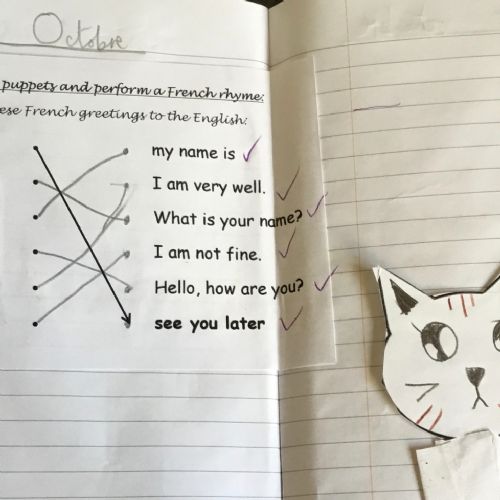 Octobre
puppets and perform a French rhyme:
ese French greetings to the English:
my name is
I am very well.
What is your name?
I am not fine.
Hello, how are you?
see you later